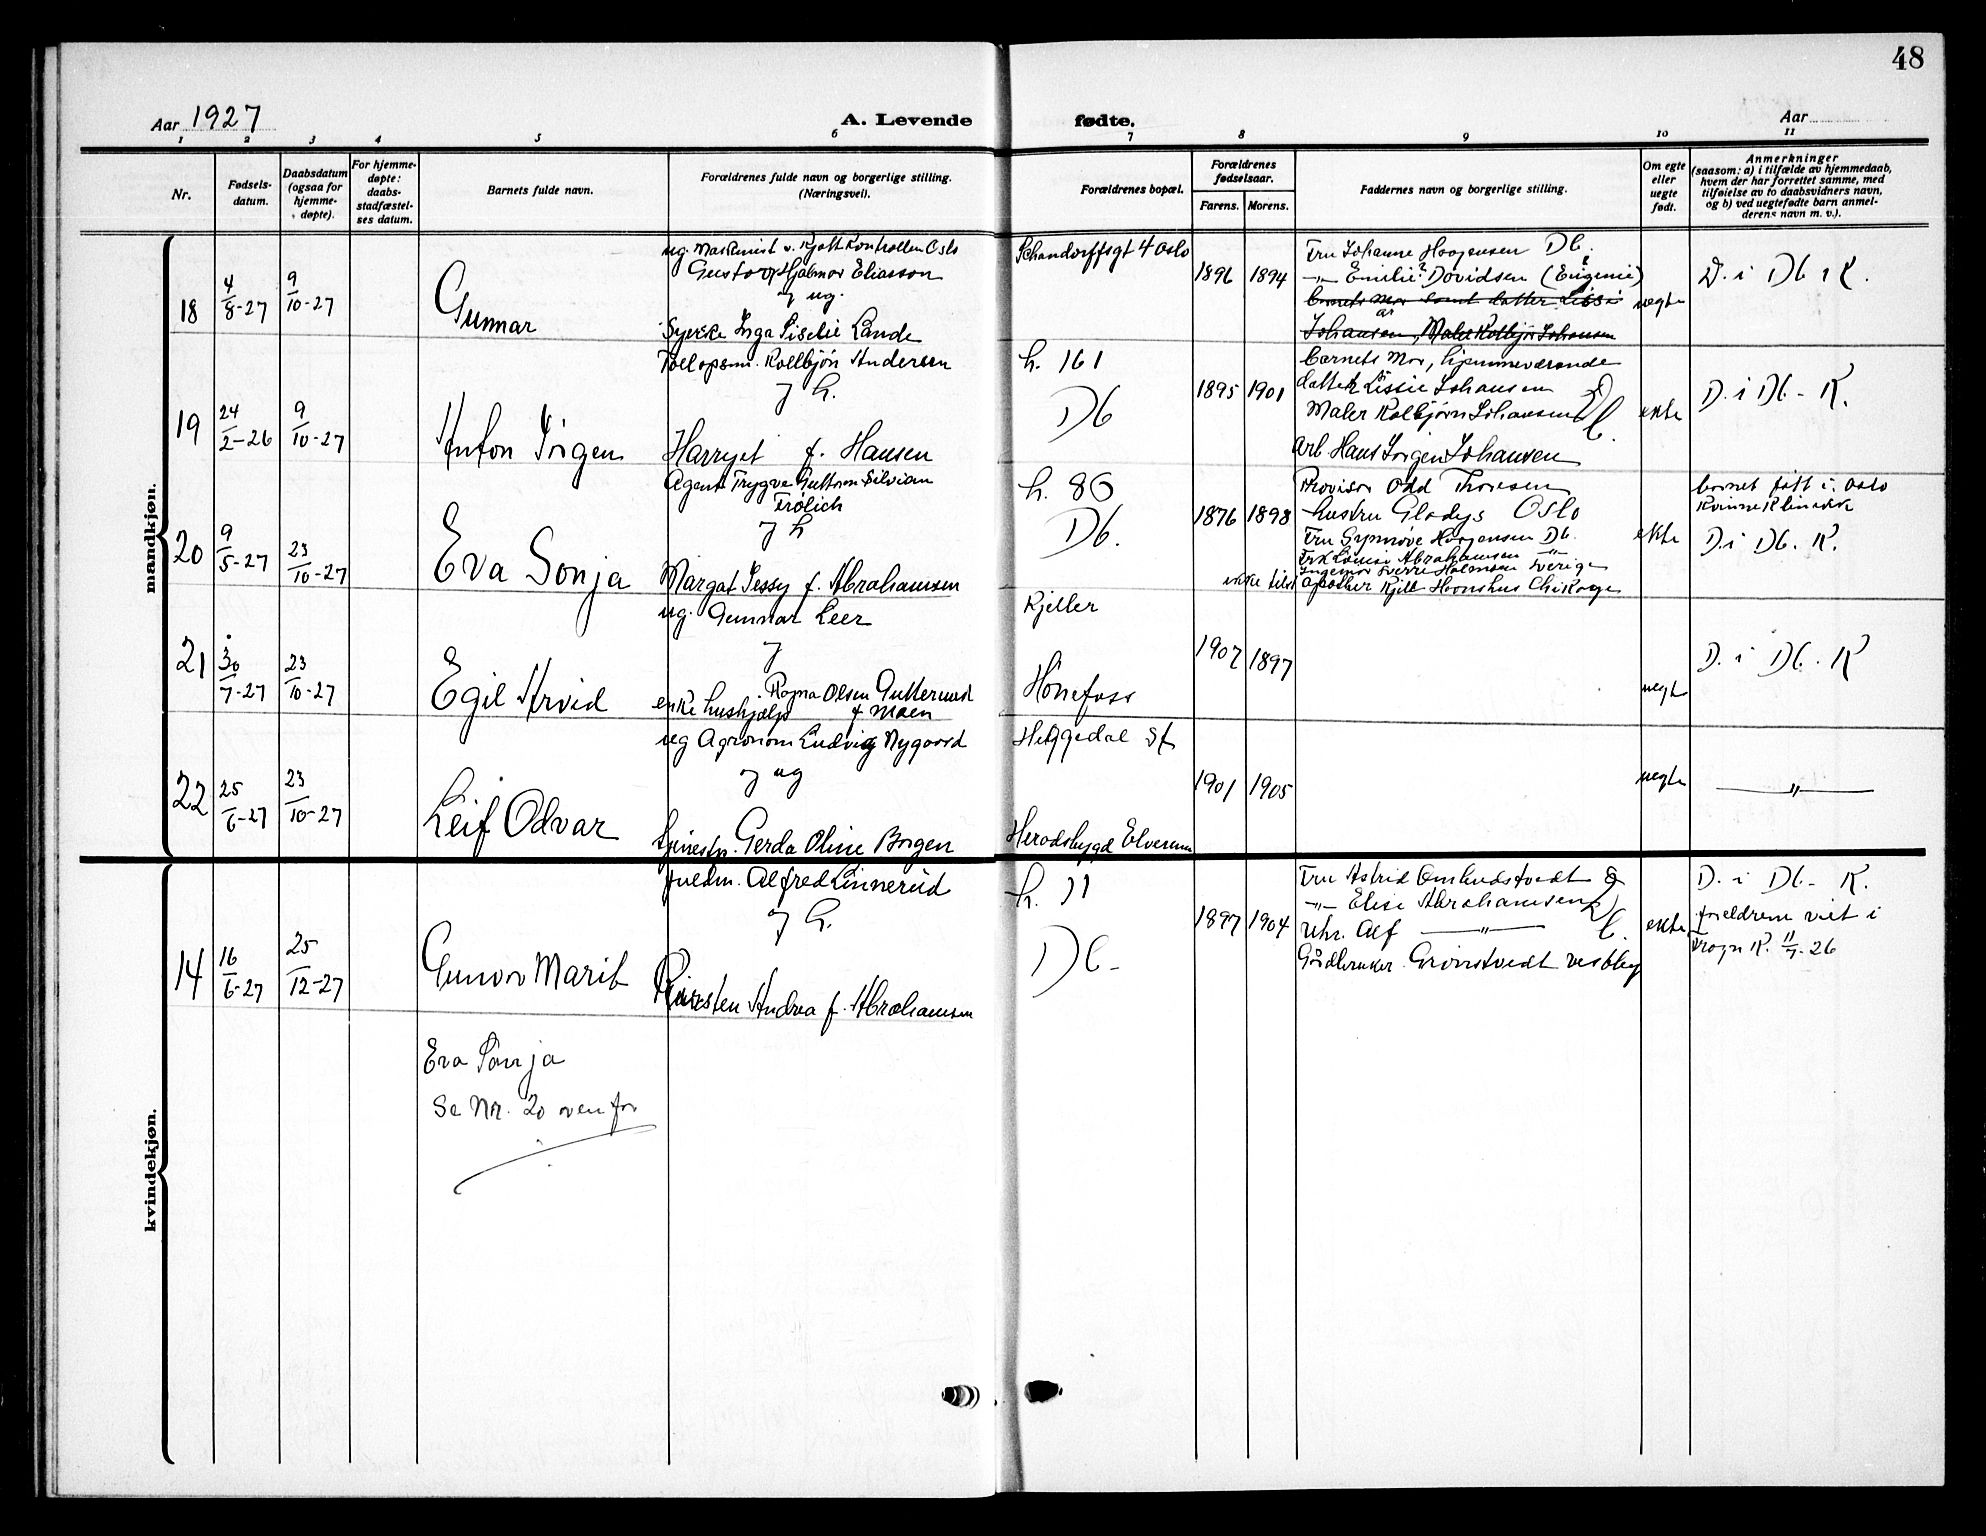 48
Aar 1927
A. Levende fødte.
Aar
1 2 3 4 5 6 7 8 9 10 11
Nr.
Fødsels-
datum.
Daabsdatum
(ogsaa for
hjemme-
døpte).
For hjemme-
døpte:
daabs-
stadfæstel-
ses datum.
Barnets fulde navn.
Forældrenes fulde navn og borgerlige stilling.
(Næringsvei).
Forældrenes bopæl.
Forældrenes
fødselsaar.
Farens. Morens.
Faddernes navn og borgerlige stilling.
Om egte
eller
uegte
født.
Anmerkninger
(saasom: a) i tilfælde av hjemmedaab,
hvem der har forrettet samme, med
tilføielse av to daabsvidners navn,
og b) ved uegtefødte barn anmel-
derens navn m. v.).
mandkjøn.
18
4/8-27
9/10-27
Gunnar
ug. Maskinist v. Kjøttkontrollen Oslo
Gustav Hjalmar Eliasson
og ug.
Syerske Inga Lande
Schandorffsgt 4 Oslo
1896 1894
Fru Johanne Haagensen Db.
-"- Emilie? Davidsen (Eugenie)
barnets mor samt datter Lissie
Johansen, Maler Kolbjørn Johansen
uegte
D. i Db K.
19
24/2-26
9/10-27
Anton Jørgen
Kolbjørn Andersen
og h.
Harryet f. Hansen
h. 161
Db
1895 1901
barnets Mor, hjemmeværende
datter Lissie Johansen
Maler Kolbjørn Johansen Db.
Arb Hans Jørgen Johansen
ekte
D. i Db - K.
20
9/5-27
23/10-27
Eva Sonja
Agent Trygve Guttorm Silvian
Frølich
og h
Margat Jessy f. Abrahamsen
h. 86
Db.
1876 1898
Provisor Odd Thoresen
hustru Gladys Oslo
Fru Synnøve Haagensen Db.
Frk Louise Abrahamsen -"-
Ingeniør Sverre Halmsen Sverige
ikke tilst apotheker Kjell Hornshus Chikago
ekte
barnet født i Oslo
Kvinneklinikk
D. i Db. K.
21
30/7-27
23/10-27
Egil Arvid
ug. Gunnar Leer
og
enke hushjælp Ragna Olsen Gutterud
f Moen
Kjeller
Hønefoss
1907 1897
uegte
D. i Db. K
22
25/6-27
23/10-27
Leif Odvar
ug Agronom Ludvig Nygaard
og ug
tjenestp. Gerda Oline Borgen
Heggedal St
Heradsbygd Elverum
1901 1905
uegte
-"-
kvindekjøn.
14
16/6-27
25/12-27
Gunvor Marit
fuldm. Alfred Linnerud
og h.
Kirsten Andrea f. Abrahamsen
h. 11
Db -
1897 1904
Fru Astrid Omlundstvedt
-"- Elise Abrahamsen
Uhr. Alf -"-
Gårdbruker Grønstvedt Vestby
ekte
D. i Db - K.
foreldrene viet i
Frogn K. 11/7-26
Eva Sonja
Se Nr. 20 ovenfor